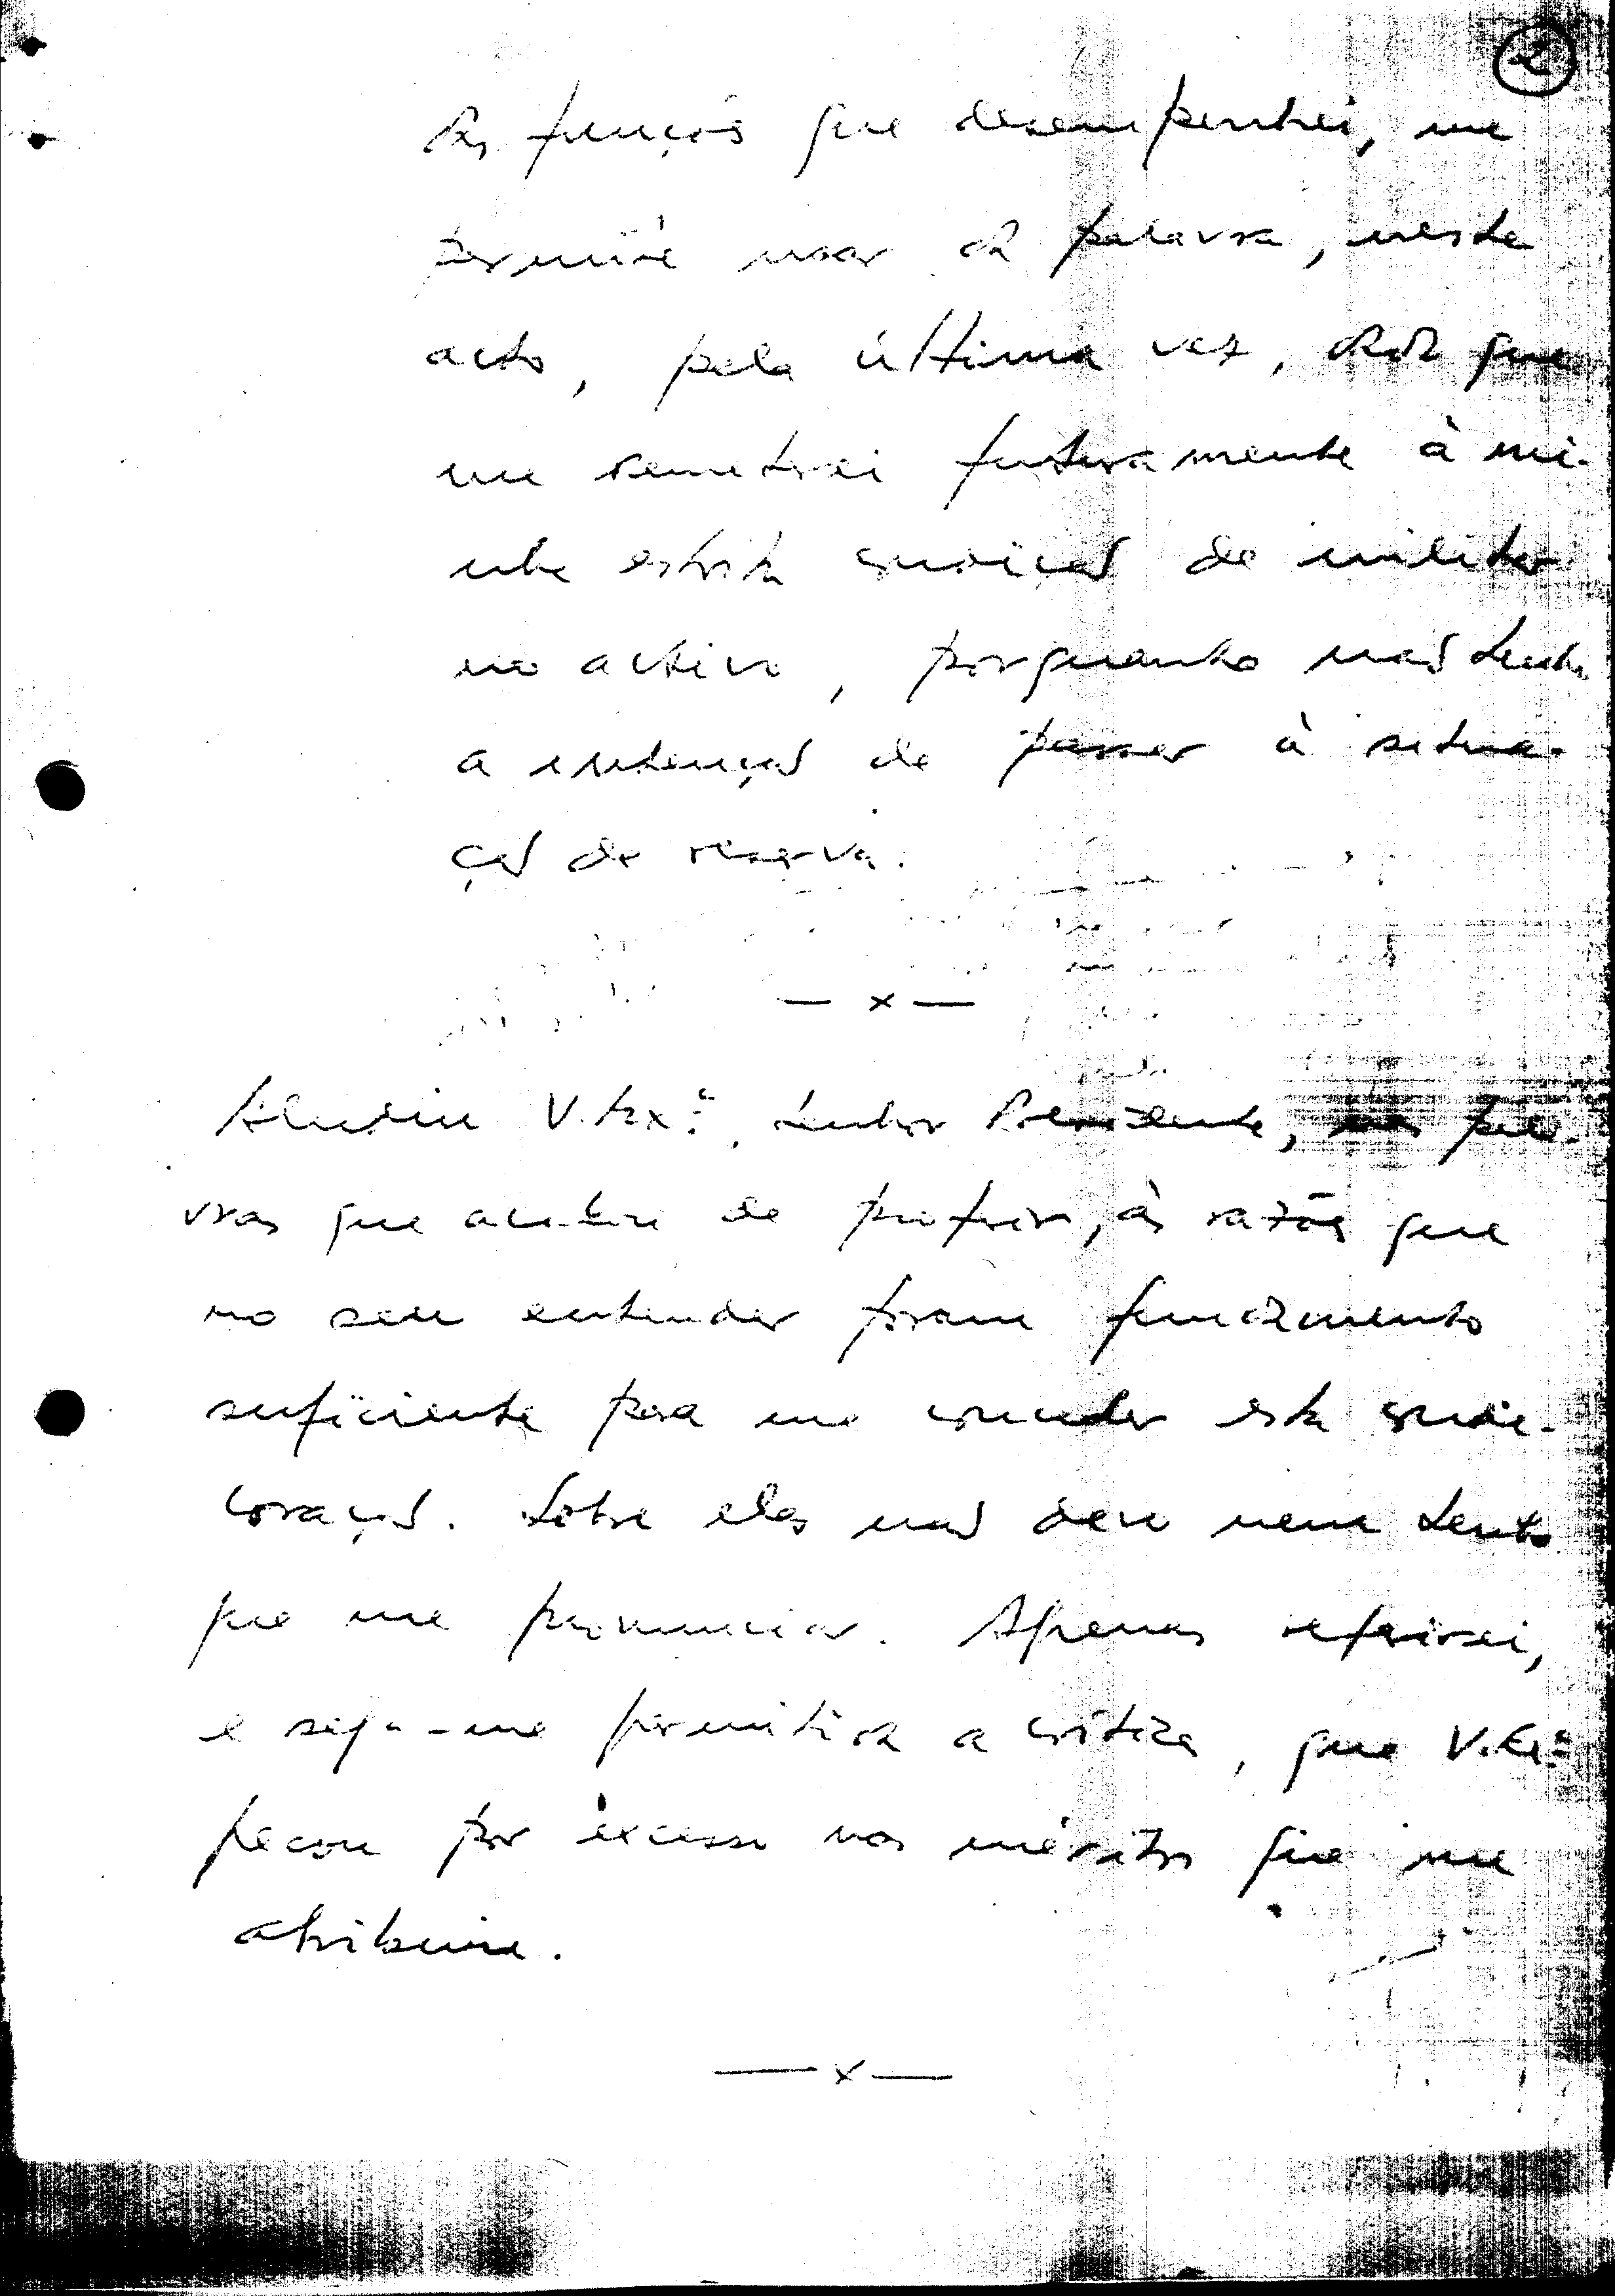 2
das funções que desempenhei, me
permite usar da palavra, neste
acto, pela última vez, dado que
me remeterei futuramente à mi-
nha estrita condição de militar
no activo, porquanto não tenho
a intenção de passar à situa-
ção de reserva.
— x —
Aludiu V. Exª., Senhor Presidente, nas pala-
vras que acabou de proferir, às razões que
no seu entender foram fundamento
suficiente para me conceder esta conde-
coração. Sobre elas não devo nem tenho
que me pronunciar. Apenas referirei,
e seja-me permitida a crítica, que V. Exª
pecou por excesso nos méritos que me
atribuiu.
— x —